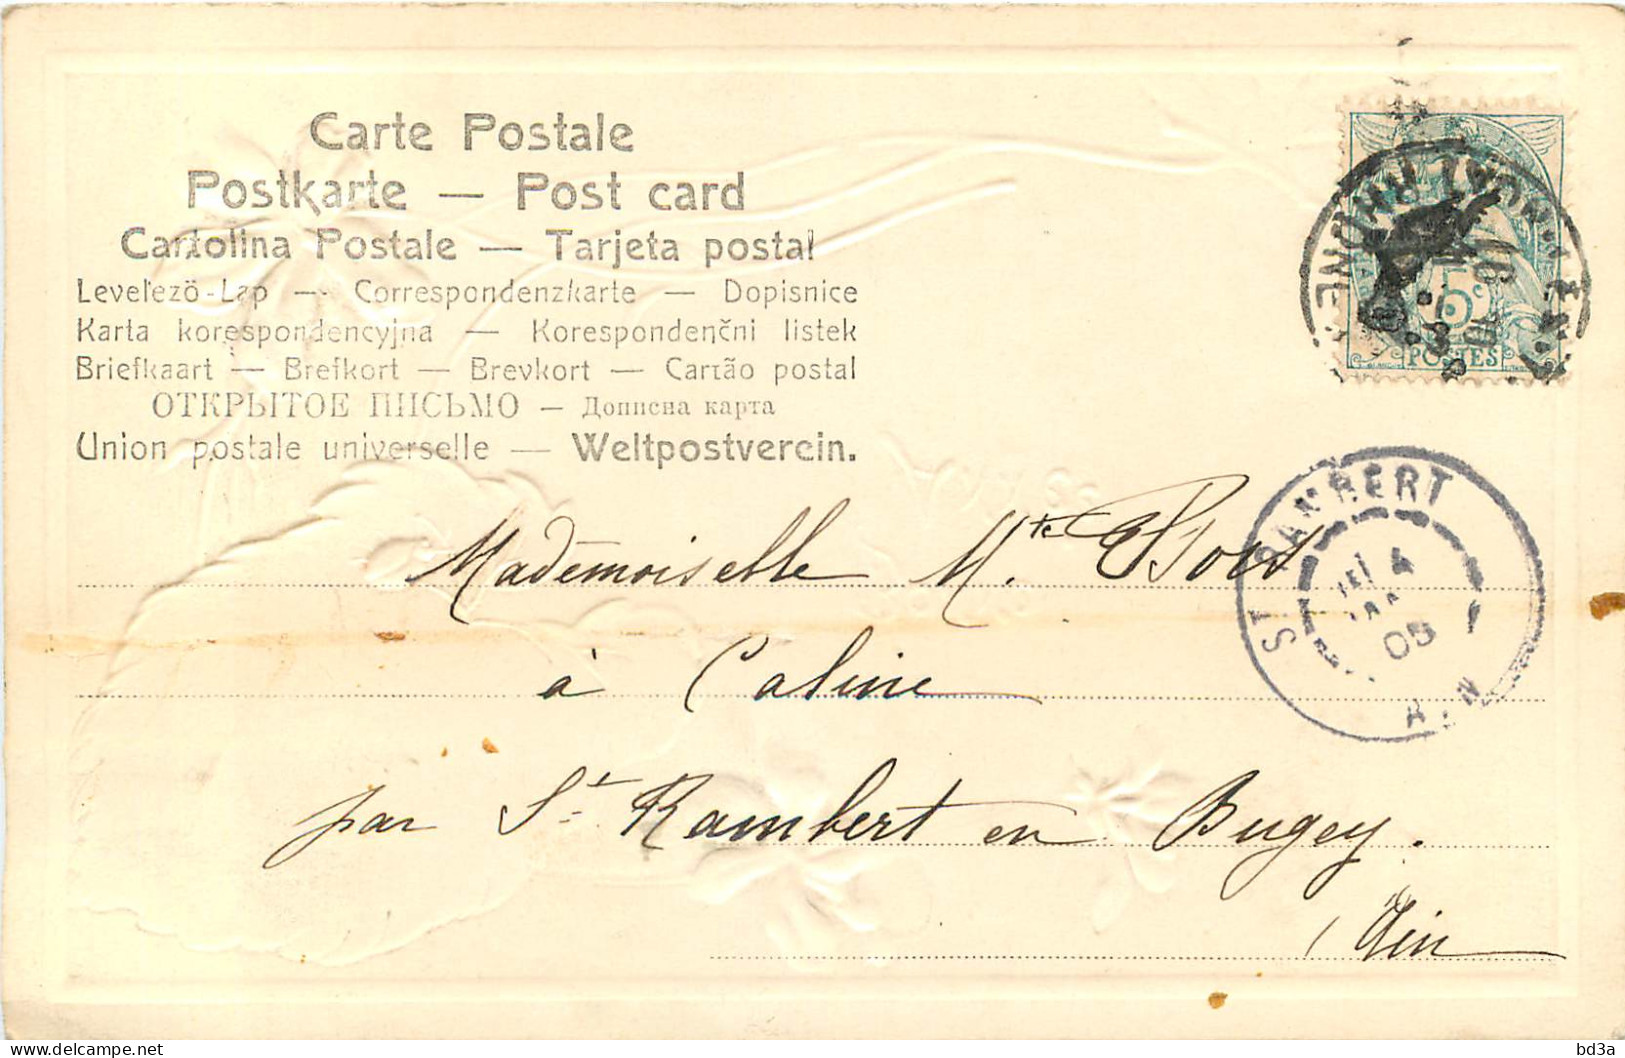 Carte Postale
Postkarte — Post card
Cartolina Postale — Tarjeta postal
Levelező-Lap — Correspondenzkarte — Dopisnice
Karta korespondencyjna — Korespondenčni listek
Briefkaart — Brefkort — Brevkort — Cartão postal
ОТКРЫТОЕ ПИСЬМО — Дописна карта
Union postale universelle — Weltpostverein.
5c
POSTES
RHONE
ST RAMBERT
4
05
AIN
Mademoiselle M.te
à Caline
par St Rambert en Bugey.
Ain
bd3a